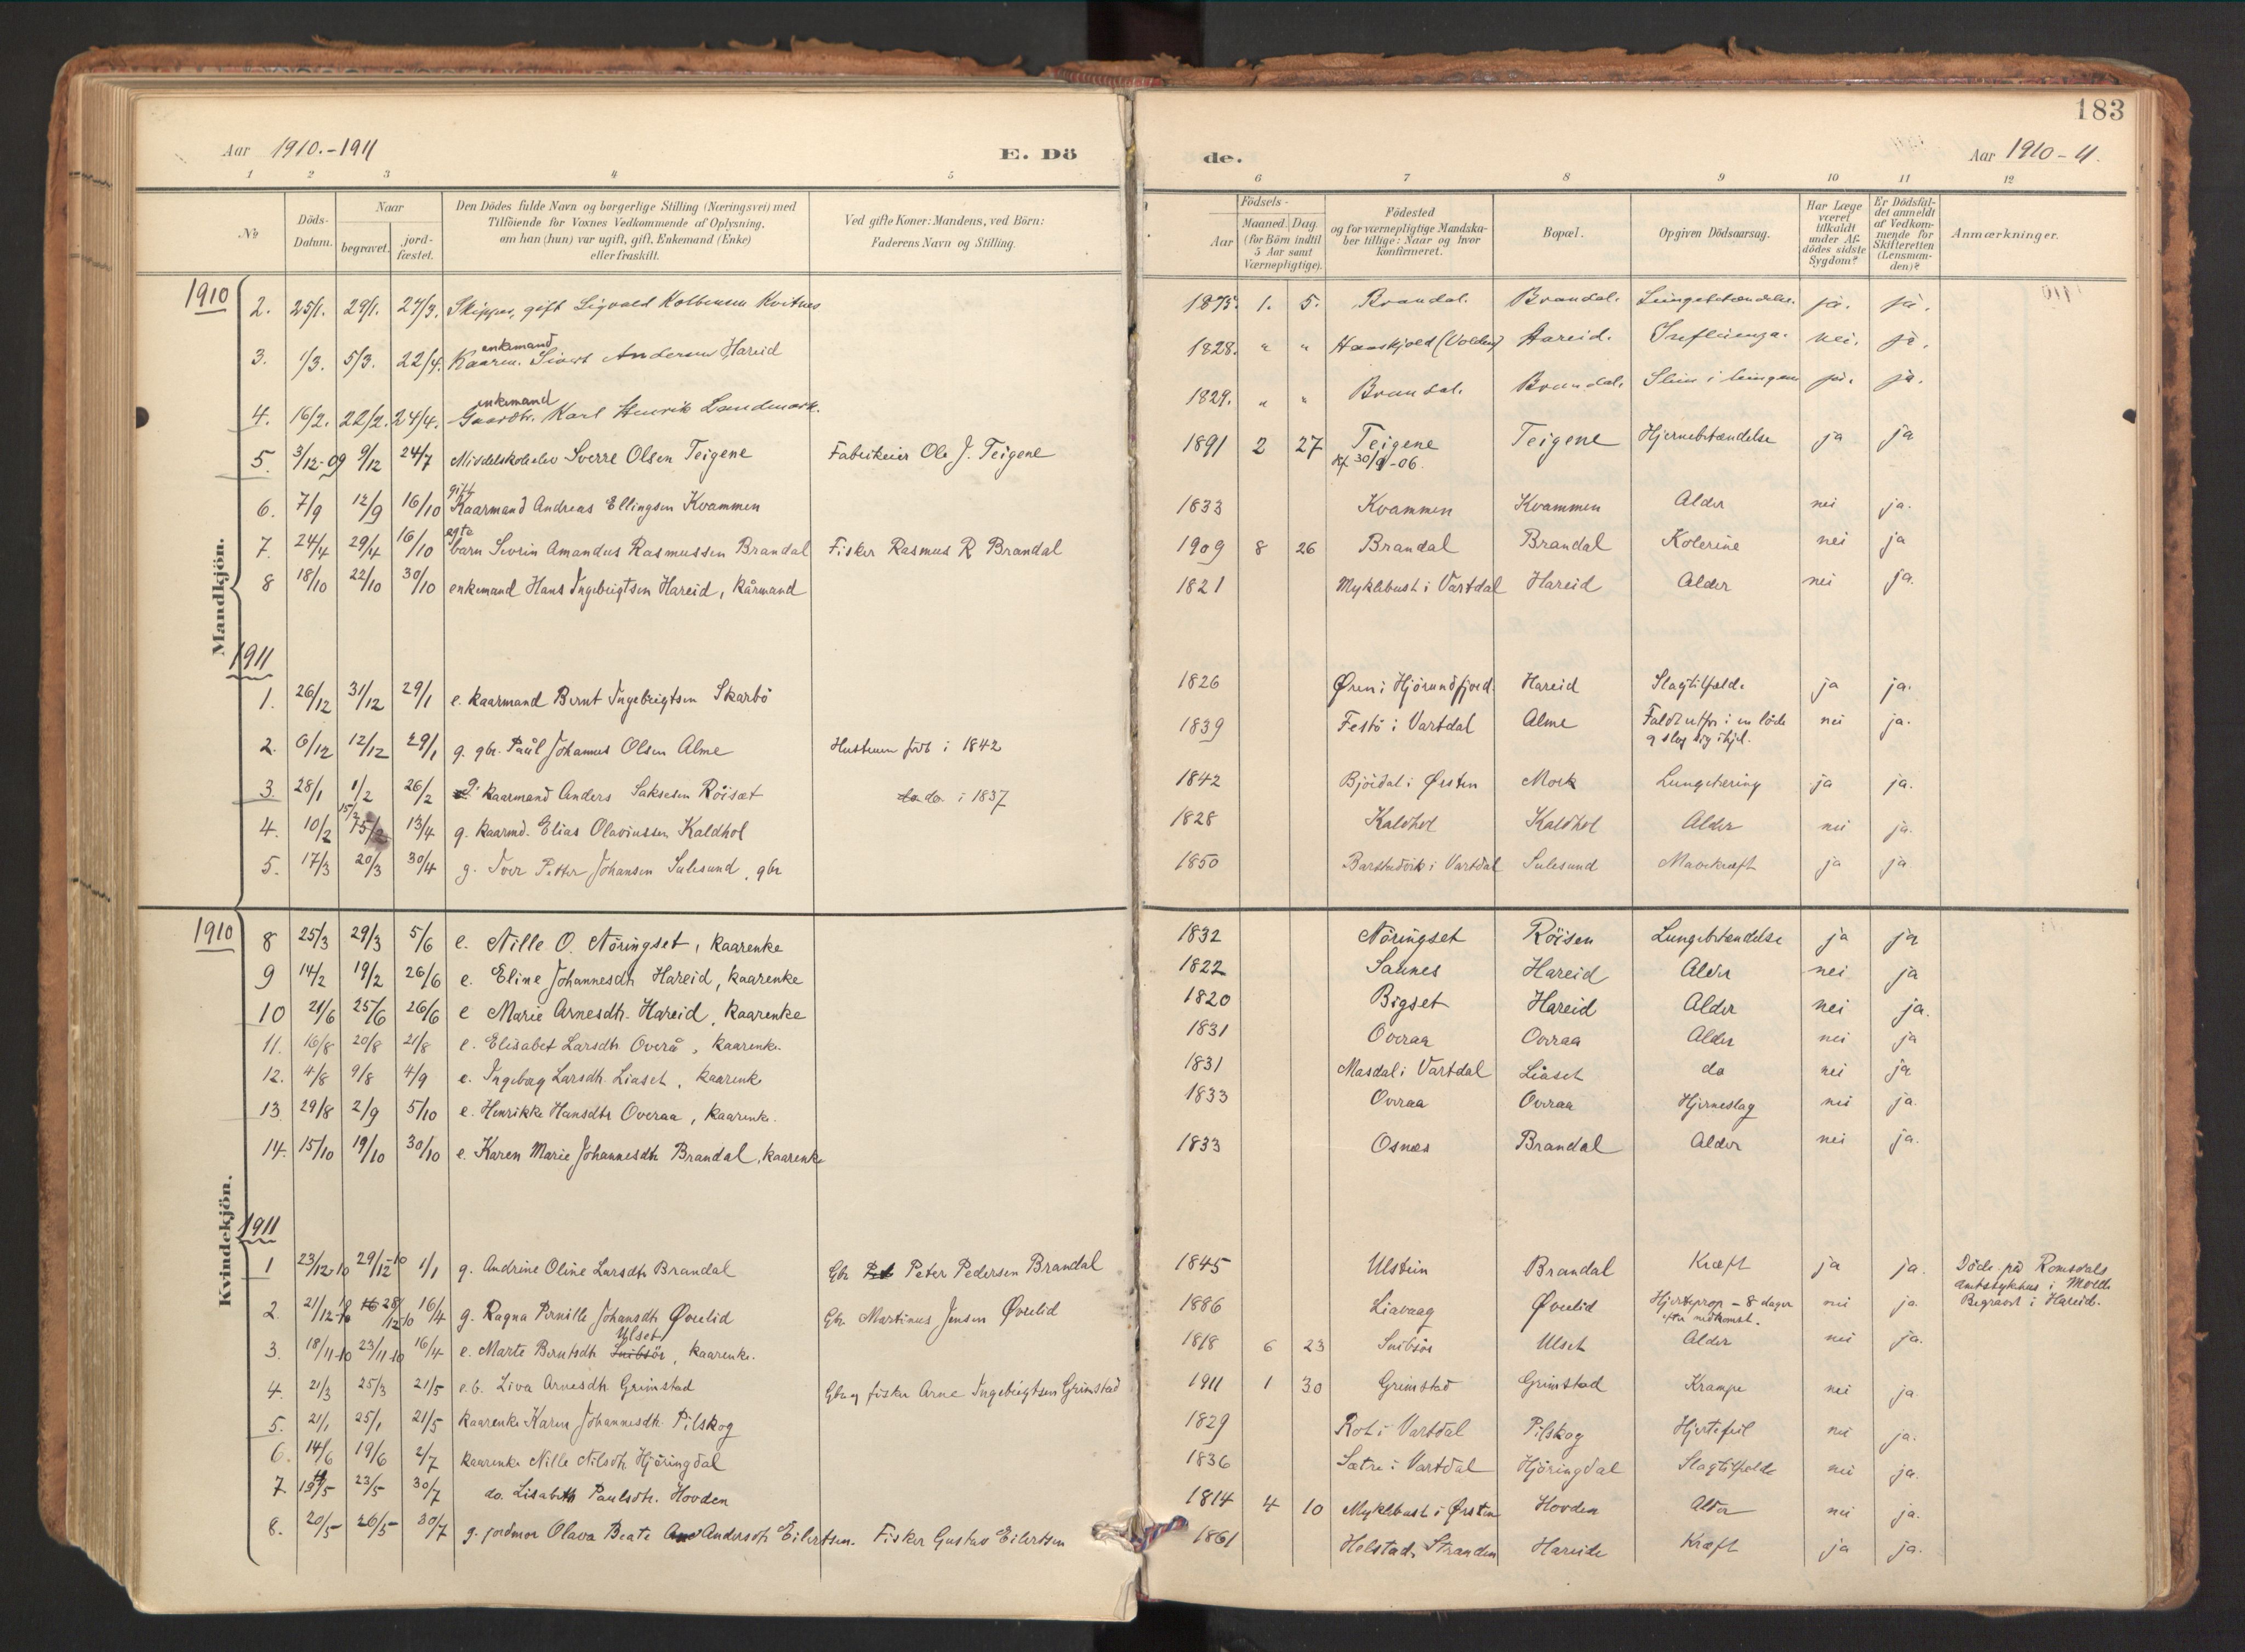 183
Aar 1910.-1911 E. Dö de. Aar 1910-11.
1 2 3 4 5 6 7 8 9 10 11 12
No
Döds-Datum.
Naar
begravet.
jord-fæstet.
Den Dödes fulde Navn og borgerlige Stilling (Næringsvei) med
Tilföiende for Voxnes Vedkommende af Oplysning,
om han (hun) var ugift, gift, Enkemand (Enke)
eller fraskilt.
Ved gifte Koner: Mandens, ved Börn:
Faderens Navn og Stilling.
Födsels-
Aar
Maaned. Dag.
(for Börn indtil
5 Aar samt
Værnepligtige).
Födested
og for værnepligtige Mandska-
ber tillige: Naar og hvor
konfirmeret.
Bopæl.
Opgiven Dödsaarsag.
Har Læge
været
tilkaldt
under Af-
dödes sidste
Sygdom?
Er Dödsfal-
det anmeldt
af Vedkom-
mende for
Skifteretten
(Lensman-
den)?
Anmærkninger.
Mandkjön.
1910
2. 25/1. 29/1. 27/3. Skipper, gift Sigvald Kolbensen Kvitnes 1875. 1. 5. Brandal. Brandal. Lungebetændelse. ja. ja.
3. 1/3. 5/3. 22/4. Kaarm. enkemand Sivert Andersen Hareid 1828. " " (Volden) Hareid. Influenza. nei. ja.
4. 16/2. 22/2. 24/4. Gaardbr. enkemand Karl Henrik Landmark. 1829. " " Brandal. Brandal. Slim i lungene ja. ja.
5. 3/12-09 9/12 24/7 Middelskoleelev Sverre Olsen Teigene Fabrikeier Ole J. Teigene 1891 2 27 Teigene Kf. 30/9-06. Teigene Hjernebetændelse ja ja
6. 7/9 12/9 16/10 gift Kaarmand Andreas Ellingsen Kvammen 1833 Kvammen Kvammen Alder nei ja.
7. 24/4 29/4 16/10 egte barn Sevrin Amandus Rasmussen Brandal Fisker Rasmus R Brandal 1909 8 26 Brandal Brandal Kolerine nei ja
8 18/10 22/10 30/10 enkemand Hans Ingebrigtsen Hareid, kårmand 1821 Myklebust i Vartdal Hareid Alder nei ja.
1911
1. 26/12 31/12 29/1 e. kaarmand Bernt Ingebrigtsen Skarbö 1826 Øren i Hjörundfjord. Hareid Slagtilfælde ja ja.
2. 6/12 12/12 29/1 g. gbr. Paul Johannes Olsen Alme Hustruen født i 1842 1839 Festö i Vartdal Alme Faldt utfor i en löde og slog sig ihjel. nei ja.
3 28/1 1/2 26/2 g. kaarmand Anders Saksesen Röisæt do. i 1837 1842 Björdal i Ørsten Mork Lungetæring ja ja.
4. 10/2 15/2 15/2 13/4 g. kaarmd. Elias Olavinssen Kaldhol 1828 Kaldhol Kaldhol Alder nei ja.
5. 17/3 20/3 30/4 g. Iver Petter Johansen Sulesund, gbr 1850 Barstadvik i Vartdal Sulesund Mavekræft ja ja
Kvindekjön.
1910
8 25/3 29/3 5/6 e. Nille O. Nöringset, kaarenke 1832 Nöringset Röisen Lungebetændelse ja ja
9 14/2 19/2 26/6 e. Eline Johannesdtr Hareid, kaarenke 1822 Saunes Hareid Alder nei ja
10 21/6 25/6 26/6 e Marie Arnesdtr. Hareid, kaarenke 1820 Bigset Hareid Alder nei ja.
11. 16/8 20/8 21/8 e. Elisabet Larsdtr Overå, kaarenke. 1831 Overaa Overaa Alder nei ja
12. 4/8 9/8 4/9 e. Ingeborg Larsdtr. Liaset, kaarenke 1831 Masdal i Vartdal Liaset do nei ja
13. 29/8 2/9 5/10 e. Henrikke Hansdtr Overaa, kaarenke. 1833 Overaa Overaa Hjerneslag nei ja.
14. 15/10 19/10 30/10 e. Karen Marie Johannesdtr Brandal, kaarenke 1833 Osnes Brandal Alder nei ja.
1911
1 23/12-10 29/12-10 1/1 g. Andrine Oline Larsdtr Brandal Gbr Peter Pedersen Brandal 1845 Ulstein Brandal Kræft ja ja. Döde på Romsdals amtssykhus i Molde Begravet i Hareid.
2. 21/12-10 28/12-10 16/4 g. Ragna Pernille Johansdtr Øvrelid Gbr. Martinus Jensen Øvrelid 1886 Liavaag Øvrelid Hjerteprop - 8 dager efter nedkomst. nei ja
3. 18/11-10 23/11-10 16/4 e. Marte Berntsdtr Snibsör Ulset, kaarenke. 1818 6 23 Snibsör Ulset Alder nei ja.
4. 21/3 25/3 21/5 e.b. Liva Arnesdtr. Grimstad Gbr og fisker Arne Ingebrigtsen Grimstad 1911 1 30 Grimstad Grimstad Krampe nei ja.
5. 21/1 25/1 21/5 kaarenke Karen Johannesdtr. Pilskog 1829 Rot i Vartdal Pilskog Hjertefeil nei ja.
6. 14/6 19/6 2/7 kaarenke Nille Nilsdtr Hjöringdal 1836 Sætre i Vartdal Hjöringdal Slagtilfælde nei ja.
7 19/5 23/5 30/7 do. Lisabeth Paulsdtr. Hovden 1814 4 10 Myklebust i Ørsten Hovden Alder nei ja.
8. 20/5 26/5 30/7 g. jordmor Olava Beate Andersdtr Eilertsen. Fisker Gustav Eilertsen 1861 Helstad, Stranden Hareide Kræft ja ja.